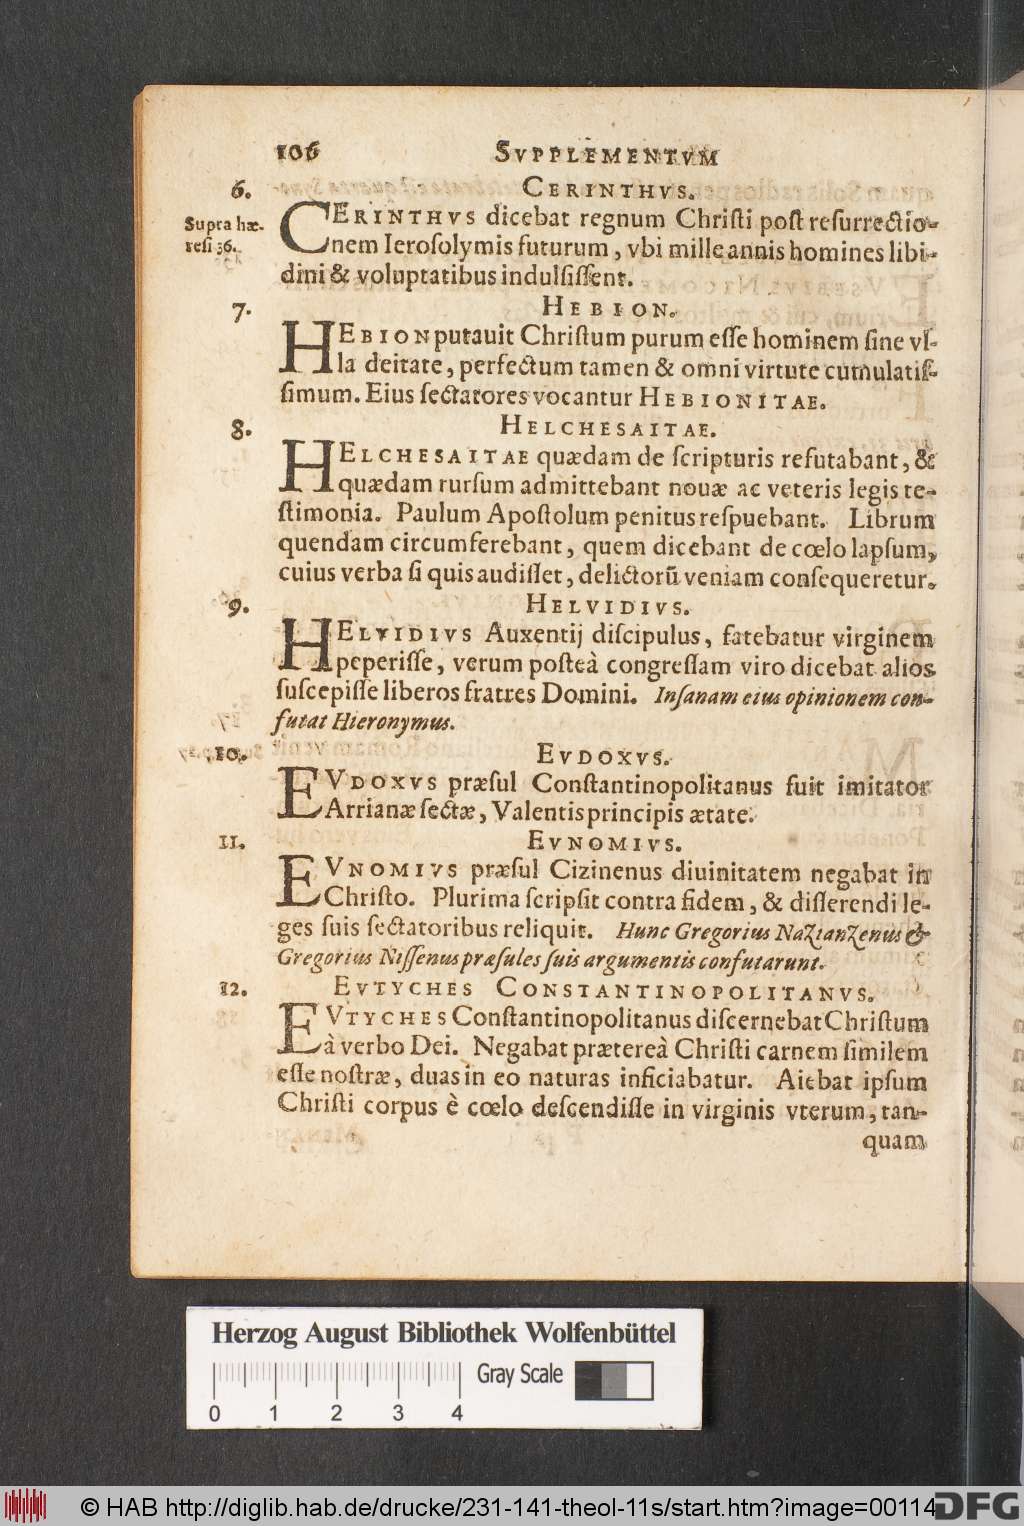 106 SVPPLEMENTVM
6. CERINTHVS.
Supra hæ-
resi 36.
CERINTHVS dicebat regnum Chriſti poſt reſurrectio-
nem Ieroſolymis futurum, vbi mille annis homines libi-
dini & voluptatibus indulſiſſent.
7. HEBION.
HEBION putauit Chriſtum purum eſſe hominem ſine vl-
la deitate, perfectum tamen & omni virtute cumulatiſ-
ſimum. Eius ſectatores vocantur HEBIONITAE.
8. HELCHESAITAE.
HELCHESAITAE quædam de ſcripturis refutabant, &
quædam rurſum admittebant nouæ ac veteris legis te-
ſtimonia. Paulum Apoſtolum penitus reſpuebant. Librum
quendam circumferebant, quem dicebant de cœlo lapſum,
cuius verba ſi quis audiſſet, delictorū veniam conſequeretur.
9. HELVIDIVS.
HELVIDIVS Auxentij diſcipulus, fatebatur virginem
peperiſſe, verum poſteà congreſſam viro dicebat alios
ſuſcepiſſe liberos fratres Domini. Inſanam eius opinionem con-
futat Hieronymus.
10. EVDOXVS.
EVDOXVS præſul Conſtantinopolitanus fuit imitator
Arrianæ ſectæ, Valentis principis ætate.
11. EVNOMIVS.
EVNOMIVS præſul Cizinenus diuinitatem negabat in
Chriſto. Plurima ſcripſit contra fidem, & diſſerendi le-
ges ſuis ſectatoribus reliquit. Hunc Gregorius Nazianzenus &
Gregorius Niſſenus præſules ſuis argumentis confutarunt.
12. EVTYCHES CONSTANTINOPOLITANVS.
EVTYCHES Conſtantinopolitanus diſcernebat Chriſtum
à verbo Dei. Negabat prætereà Chriſti carnem ſimilem
eſſe noſtræ, duas in eo naturas inficiabatur. Aiebat ipſum
Chriſti corpus è cœlo deſcendiſſe in virginis vterum, tan-
quam
Herzog August Bibliothek Wolfenbüttel
Gray Scale
0 1 2 3 4
© HAB http://diglib.hab.de/drucke/231-141-theol-11s/start.htm?image=00114
DFG